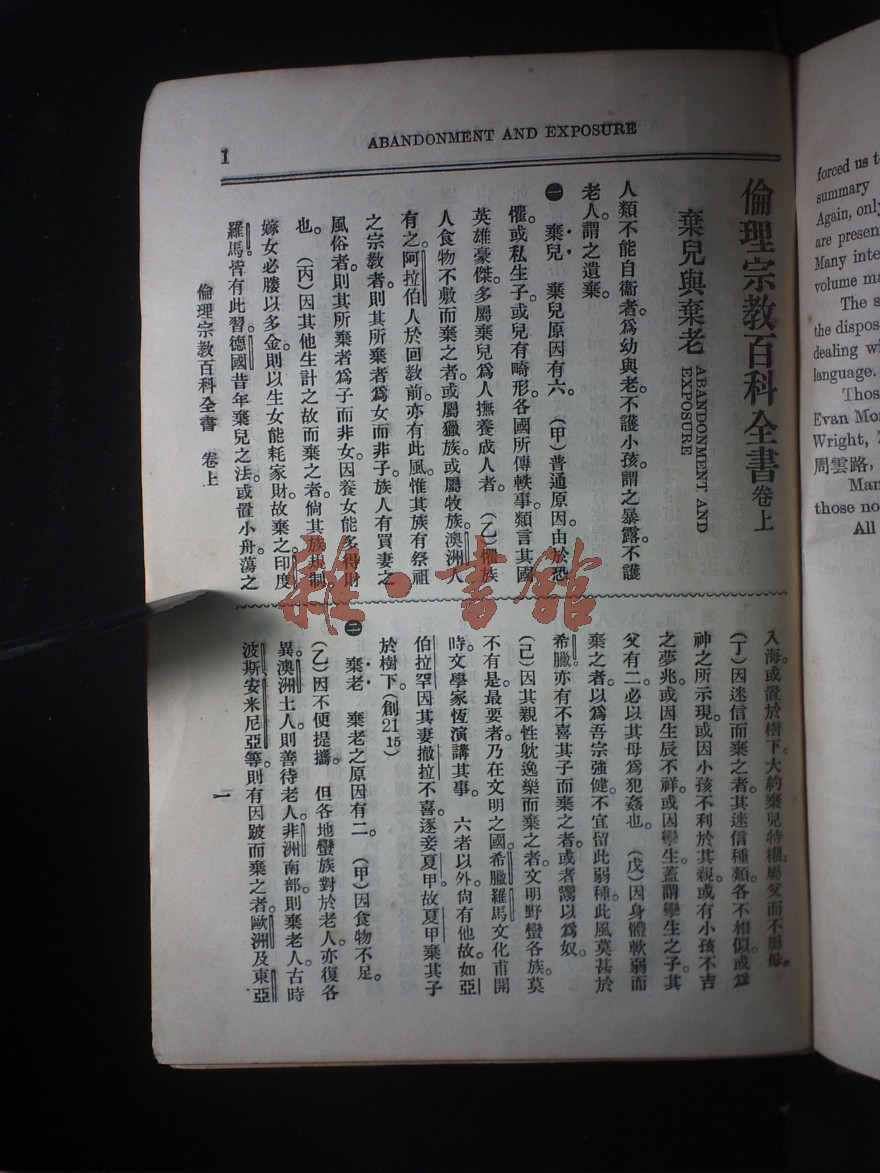 1
ABANDONMENT AND EXPOSURE
倫理宗教百科全書卷上
棄兒與棄老 ABANDONMENT AND
EXPOSURE
人類不能自衞者。爲幼與老。不護小孩謂之暴露。不護
老人謂之遺棄。
㊀ 棄兒 棄兒原因有六。 (甲)普通原因。由於恐
懼。或私生子。或兒有畸形。各國所傳軼事。類言其國
英雄豪傑。多屬棄兒爲人撫養成人者。 (乙)因族
人食物不敷而棄之者。或屬獵族。或屬牧族。澳洲人
有之。阿拉伯人於回教前。亦有此風。惟其族有祭祖
之宗教者。則其所棄者爲女而非子。族人有買妻之
風俗者。則其所棄者爲子而非女。因養女能多得財
也。 (丙)因其他生計之故而棄之者。倘其族規制。
嫁女必媵以多金。則以生女能耗家財。故棄之。印度
羅馬。皆有此習。德國昔年棄兒之法。或置小舟。蕩之
入海。或置於樹下。大約棄兒特權。屬父而不屬母。
(丁)因迷信而棄之者。其迷信種類。各不相似。或爲
神之所示現。或因小孩不利於其親。或有小孩不吉
之夢兆。或因生辰不祥。或因孿生。蓋謂孿生之子。其
父有二。必以其母爲犯姦也。 (戊)因身體軟弱而
棄之者。以爲吾宗強健。不宜留此弱種。此風莫甚於
希臘。亦有不喜其子而棄之者。或者鬻以爲奴。
(己)因其親性躭逸樂而棄之者。文明野蠻各族。莫
不有是。最要者。乃在文明之國。希臘羅馬文化甫開
時。文學家恆演講其事。 六者以外。尙有他故。如亞
伯拉罕因其妻撒拉不喜。逐妾夏甲。故夏甲棄其子
於樹下。(創21 15)
㊁ 棄老 棄老之原因有二。 (甲)因食物不足。
(乙)因不便提攜。 但各地蠻族對於老人。亦復各
異。澳洲土人。則善待老人。非洲南部。則棄老人。古時
波斯安米尼亞等。則有因跛而棄之者。歐洲及東亞
倫理宗教百科全書 卷上
一
forced us t
summary
Again, only
are presen
Many inte
volume ma
The s
the dispos
dealing wi
language.
Thos
Evan Mo
Wright,
周雲路,
Man
those no
All
雜·書館